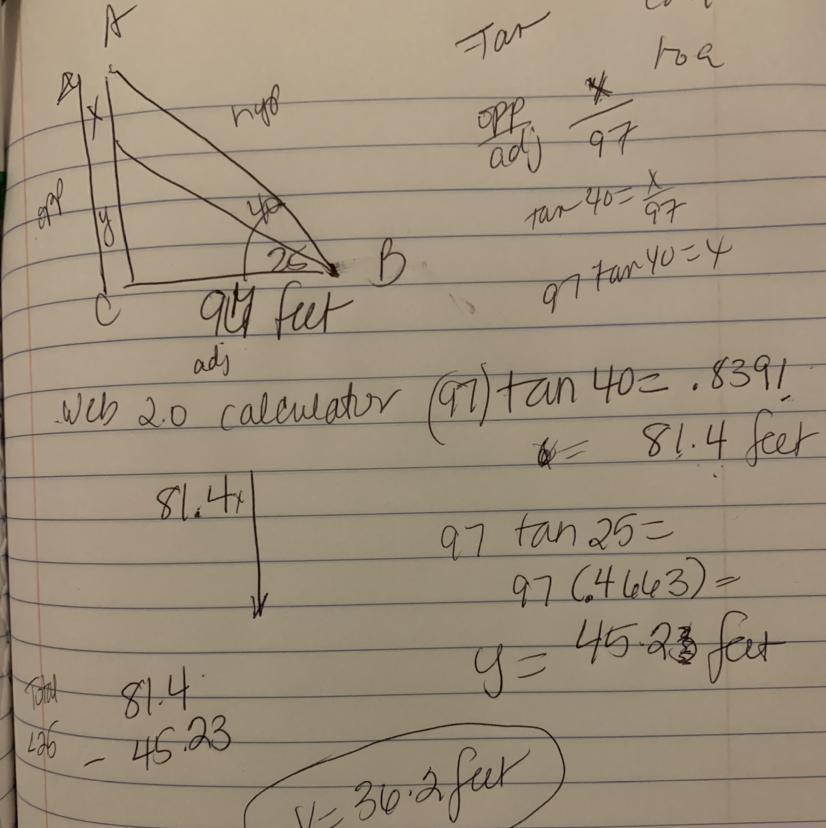 A
=Tan
toa
x
hyp
opp
adj
x
97
opp
y
40
25
tan 40 = x/97
B
97 tan 40 = x
C
97 feet
adj
Web 2.0 calculator (97) tan 40 = .8391
x = 81.4 feet
81.4x
97 tan 25 =
97 (.4663) =
y = 45.23 feet
Total 81.4
- 45.23
= 36.2 feet